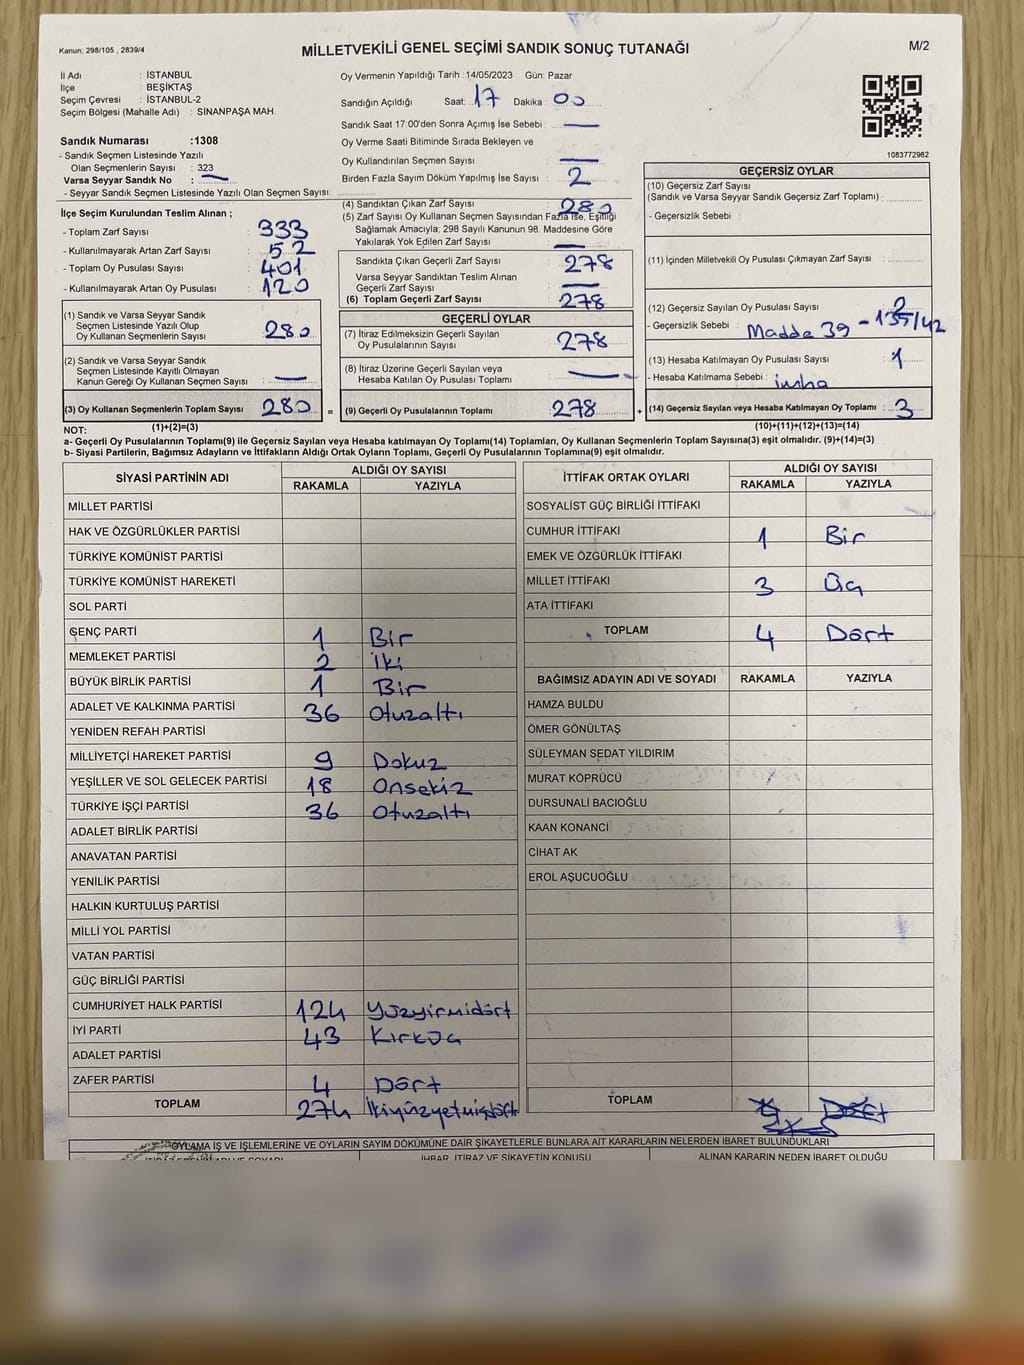 Kanun: 298/105 , 2839/4
MİLLETVEKİLİ GENEL SEÇİMİ SANDIK SONUÇ TUTANAĞI
M/2
İl Adı : İSTANBUL
İlçe : BEŞİKTAŞ
Seçim Çevresi : İSTANBUL-2
Seçim Bölgesi (Mahalle Adı) : SİNANPAŞA MAH.
Oy Vermenin Yapıldığı Tarih :14/05/2023 Gün: Pazar
Sandığın Açıldığı Saat: 17 Dakika : 00
Sandık Saat 17:00'den Sonra Açımış İse Sebebi : —
Oy Verme Saati Bitiminde Sırada Bekleyen ve
Oy Kullandırılan Seçmen Sayısı : —
Birden Fazla Sayım Döküm Yapılmış İse Sayısı : 2
1083772962
Sandık Numarası :1308
- Sandık Seçmen Listesinde Yazılı
Olan Seçmenlerin Sayısı : 323
Varsa Seyyar Sandık No : —
- Seyyar Sandık Seçmen Listesinde Yazılı Olan Seçmen Sayısı:
İlçe Seçim Kurulundan Teslim Alınan ;
- Toplam Zarf Sayısı : 333
- Kullanılmayarak Artan Zarf Sayısı : 52
- Toplam Oy Pusulası Sayısı : 401
- Kullanılmayarak Artan Oy Pusulası : 120
(1) Sandık ve Varsa Seyyar Sandık
Seçmen Listesinde Yazılı Olup
Oy Kullanan Seçmenlerin Sayısı : 280
(2) Sandık ve Varsa Seyyar Sandık
Seçmen Listesinde Kayıtlı Olmayan
Kanun Gereği Oy Kullanan Seçmen Sayısı : —
(3) Oy Kullanan Seçmenlerin Toplam Sayısı : 280 =
(1)+(2)=(3)
(4) Sandıktan Çıkan Zarf Sayısı : 280
(5) Zarf Sayısı Oy Kullanan Seçmen Sayısından Fazla İse, Eşitliği
Sağlamak Amacıyla; 298 Sayılı Kanunun 98. Maddesine Göre
Yakılarak Yok Edilen Zarf Sayısı : —
Sandıkta Çıkan Geçerli Zarf Sayısı : 278
Varsa Seyyar Sandıktan Teslim Alınan
Geçerli Zarf Sayısı : —
(6) Toplam Geçerli Zarf Sayısı : 278
GEÇERLİ OYLAR
(7) İtiraz Edilmeksizin Geçerli Sayılan
Oy Pusulalarının Sayısı : 278
(8) İtiraz Üzerine Geçerli Sayılan veya
Hesaba Katılan Oy Pusulası Toplamı : —
(9) Geçerli Oy Pusulalarının Toplamı : 278 +
GEÇERSİZ OYLAR
(10) Geçersiz Zarf Sayısı
(Sandık ve Varsa Seyyar Sandık Geçersiz Zarf Toplamı) :
- Geçersizlik Sebebi :
(11) İçinden Milletvekili Oy Pusulası Çıkmayan Zarf Sayısı :
(12) Geçersiz Sayılan Oy Pusulası Sayısı : 2
- Geçersizlik Sebebi : Madde 39 - 135/42
(13) Hesaba Katılmayan Oy Pusulası Sayısı : 1
- Hesaba Katılmama Sebebi : imha
(14) Geçersiz Sayılan veya Hesaba Katılmayan Oy Toplamı : 3
(10)+(11)+(12)+(13)=(14)
NOT:
a- Geçerli Oy Pusulalarının Toplamı(9) ile Geçersiz Sayılan veya Hesaba katılmayan Oy Toplamı(14) Toplamları, Oy Kullanan Seçmenlerin Toplam Sayısına(3) eşit olmalıdır. (9)+(14)=(3)
b- Siyasi Partilerin, Bağımsız Adayların ve İttifakların Aldığı Ortak Oyların Toplamı, Geçerli Oy Pusulalarının Toplamına(9) eşit olmalıdır.
SİYASİ PARTİNİN ADI
ALDIĞI OY SAYISI
RAKAMLA YAZIYLA
MİLLET PARTİSİ
HAK VE ÖZGÜRLÜKLER PARTİSİ
TÜRKİYE KOMÜNİST PARTİSİ
TÜRKİYE KOMÜNİST HAREKETİ
SOL PARTİ
GENÇ PARTİ 1 Bir
MEMLEKET PARTİSİ 2 İki
BÜYÜK BİRLİK PARTİSİ 1 Bir
ADALET VE KALKINMA PARTİSİ 36 Otuzaltı
YENİDEN REFAH PARTİSİ
MİLLİYETÇİ HAREKET PARTİSİ 9 Dokuz
YEŞİLLER VE SOL GELECEK PARTİSİ 18 Onsekiz
TÜRKİYE İŞÇİ PARTİSİ 36 Otuzaltı
ADALET BİRLİK PARTİSİ
ANAVATAN PARTİSİ
YENİLİK PARTİSİ
HALKIN KURTULUŞ PARTİSİ
MİLLİ YOL PARTİSİ
VATAN PARTİSİ
GÜÇ BİRLİĞİ PARTİSİ
CUMHURİYET HALK PARTİSİ 124 Yüzyirmidört
İYİ PARTİ 43 Kırküç
ADALET PARTİSİ
ZAFER PARTİSİ 4 Dört
TOPLAM 274 İkiyüzyetmişdört
İTTİFAK ORTAK OYLARI
ALDIĞI OY SAYISI
RAKAMLA YAZIYLA
SOSYALİST GÜÇ BİRLİĞİ İTTİFAKI
CUMHUR İTTİFAKI 1 Bir
EMEK VE ÖZGÜRLÜK İTTİFAKI
MİLLET İTTİFAKI 3 Üç
ATA İTTİFAKI
TOPLAM 4 Dört
BAĞIMSIZ ADAYIN ADI VE SOYADI RAKAMLA YAZIYLA
HAMZA BULDU
ÖMER GÖNÜLTAŞ
SÜLEYMAN SEDAT YILDIRIM
MURAT KÖPRÜCÜ
DURSUNALİ BACIOĞLU
KAAN KONANCİ
CİHAT AK
EROL AŞUCUOĞLU
TOPLAM
OYLAMA İŞ VE İŞLEMLERİNE VE OYLARIN SAYIM DÖKÜMÜNE DAİR ŞİKAYETLERLE BUNLARA AİT KARARLARIN NELERDEN İBARET BULUNDUKLARI
İHBAR, İTİRAZ VE ŞİKAYETİN KONUSU ALINAN KARARIN NEDEN İBARET OLDUĞU